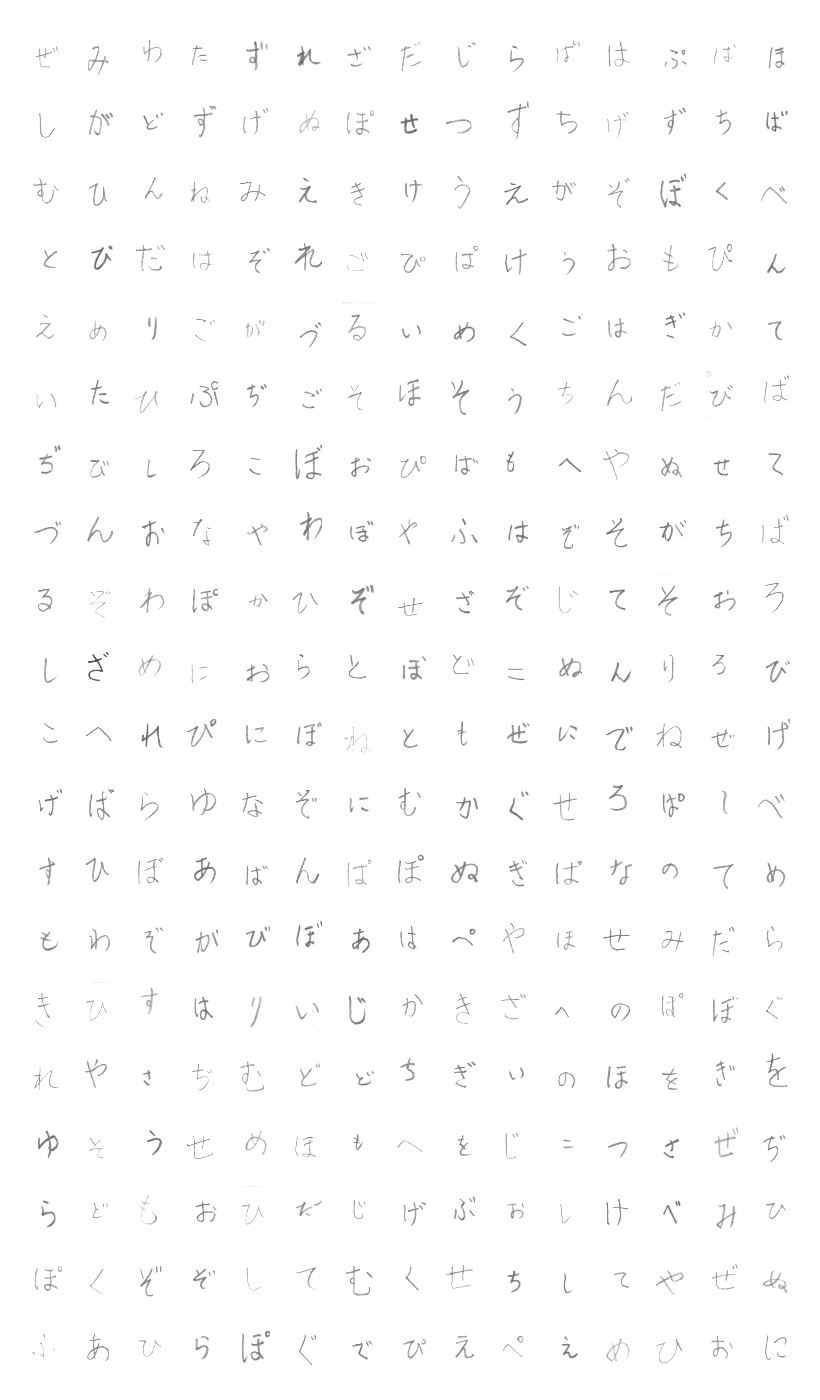 ぜみわたずれざだじらばはぷばほ
しがどずげぬぽせつずちげずちば
むひんねみえきけうえがぞぼくべ
とびだはぞれごぴぱけぅおもぴん
えめりごがづるいめくごはぎかて
いたひぷぢごそほそうちんだびば
ぢびしろこぼおぴばもへやぬせて
づんおなやわぼやふはぞそがちば
るぞわぽかひぞせざぞじてそおろ
しざめにおらとぼどこぬんりろび
こへれぴにぼねともぜにでねぜげ
げばらゆなぞにむかぐせろぱしべ
すひぼあばんぱぽぬぎばなのてめ
もわぞがびぼあはぺやほせみだら
きひすはりいじかきざへのぽぼぐ
れやさぢむどどちぎいのほをぎを
ゆそうせめほもへをじこつさぜぢ
らどもおひだじげぶおしけべみひ
ぽくぞぞしてむくせちしてやぜぬ
ふあひらぽぐでぴえぺえめひおに